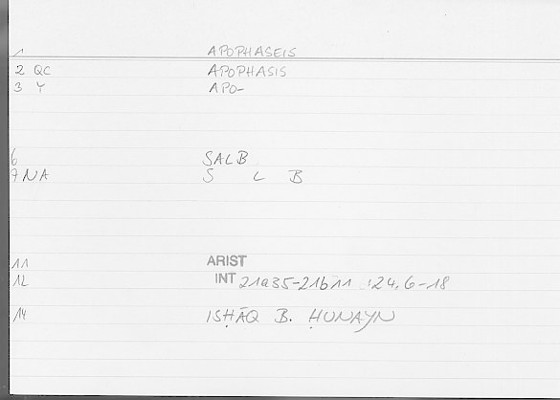 1 APOPHASEIS
2 QC APOPHASIS
3 Y APO-
6 SALB
7 NA S L B
11 ARIST
12 INT 21a35-21b11 :24.6-18
14 ISḤĀQ B. ḤUNAYN